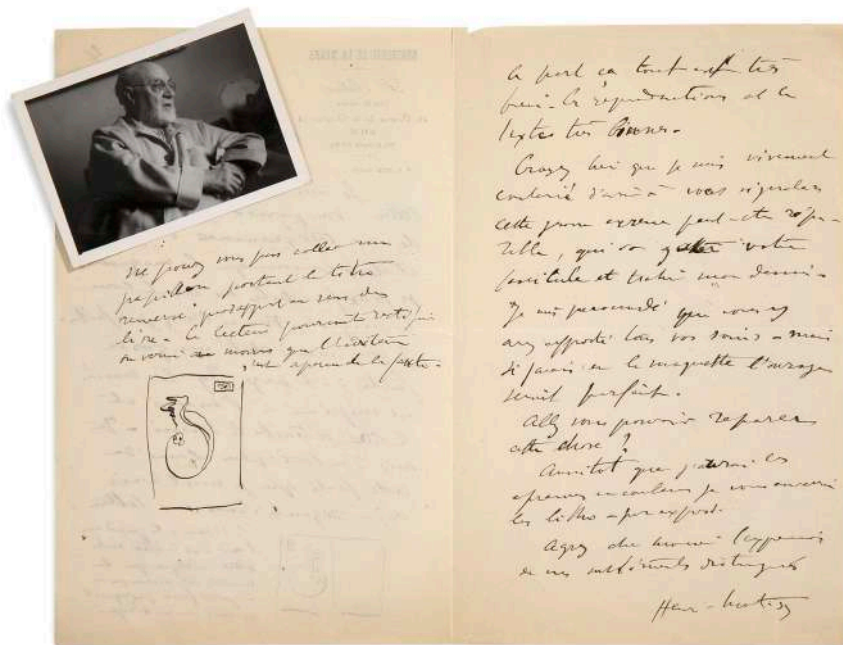 ne pouvez vous pas coller un
papillon portant le titre
renversé par rapport au sens du
livre - le lecteur pourrait rectifier
ou verrai au moins que l'éditeur
s'est aperçu de la faute.
à part ça tout est très
bien - les reproductions et le
texte très bonnes -
Croyez bien que je suis vivement
contrarié d'avoir à vous signaler
cette grosse erreur peut-être répa-
rable, qui va gâter votre
fascicule et trahi mon dessin -
Je suis persuadé que vous y
avez apporté tous vos soins - mais
si j'avais eu la maquette l'ouvrage
serait parfait.
Allez vous pouvoir réparer
cette chose ?
Aussitôt que j'aurai les
épreuves en couleurs je vous enverrai
les litho - par export.
Agréez cher monsieur l'expression
de mes sentiments distingués
Henri-Matisse